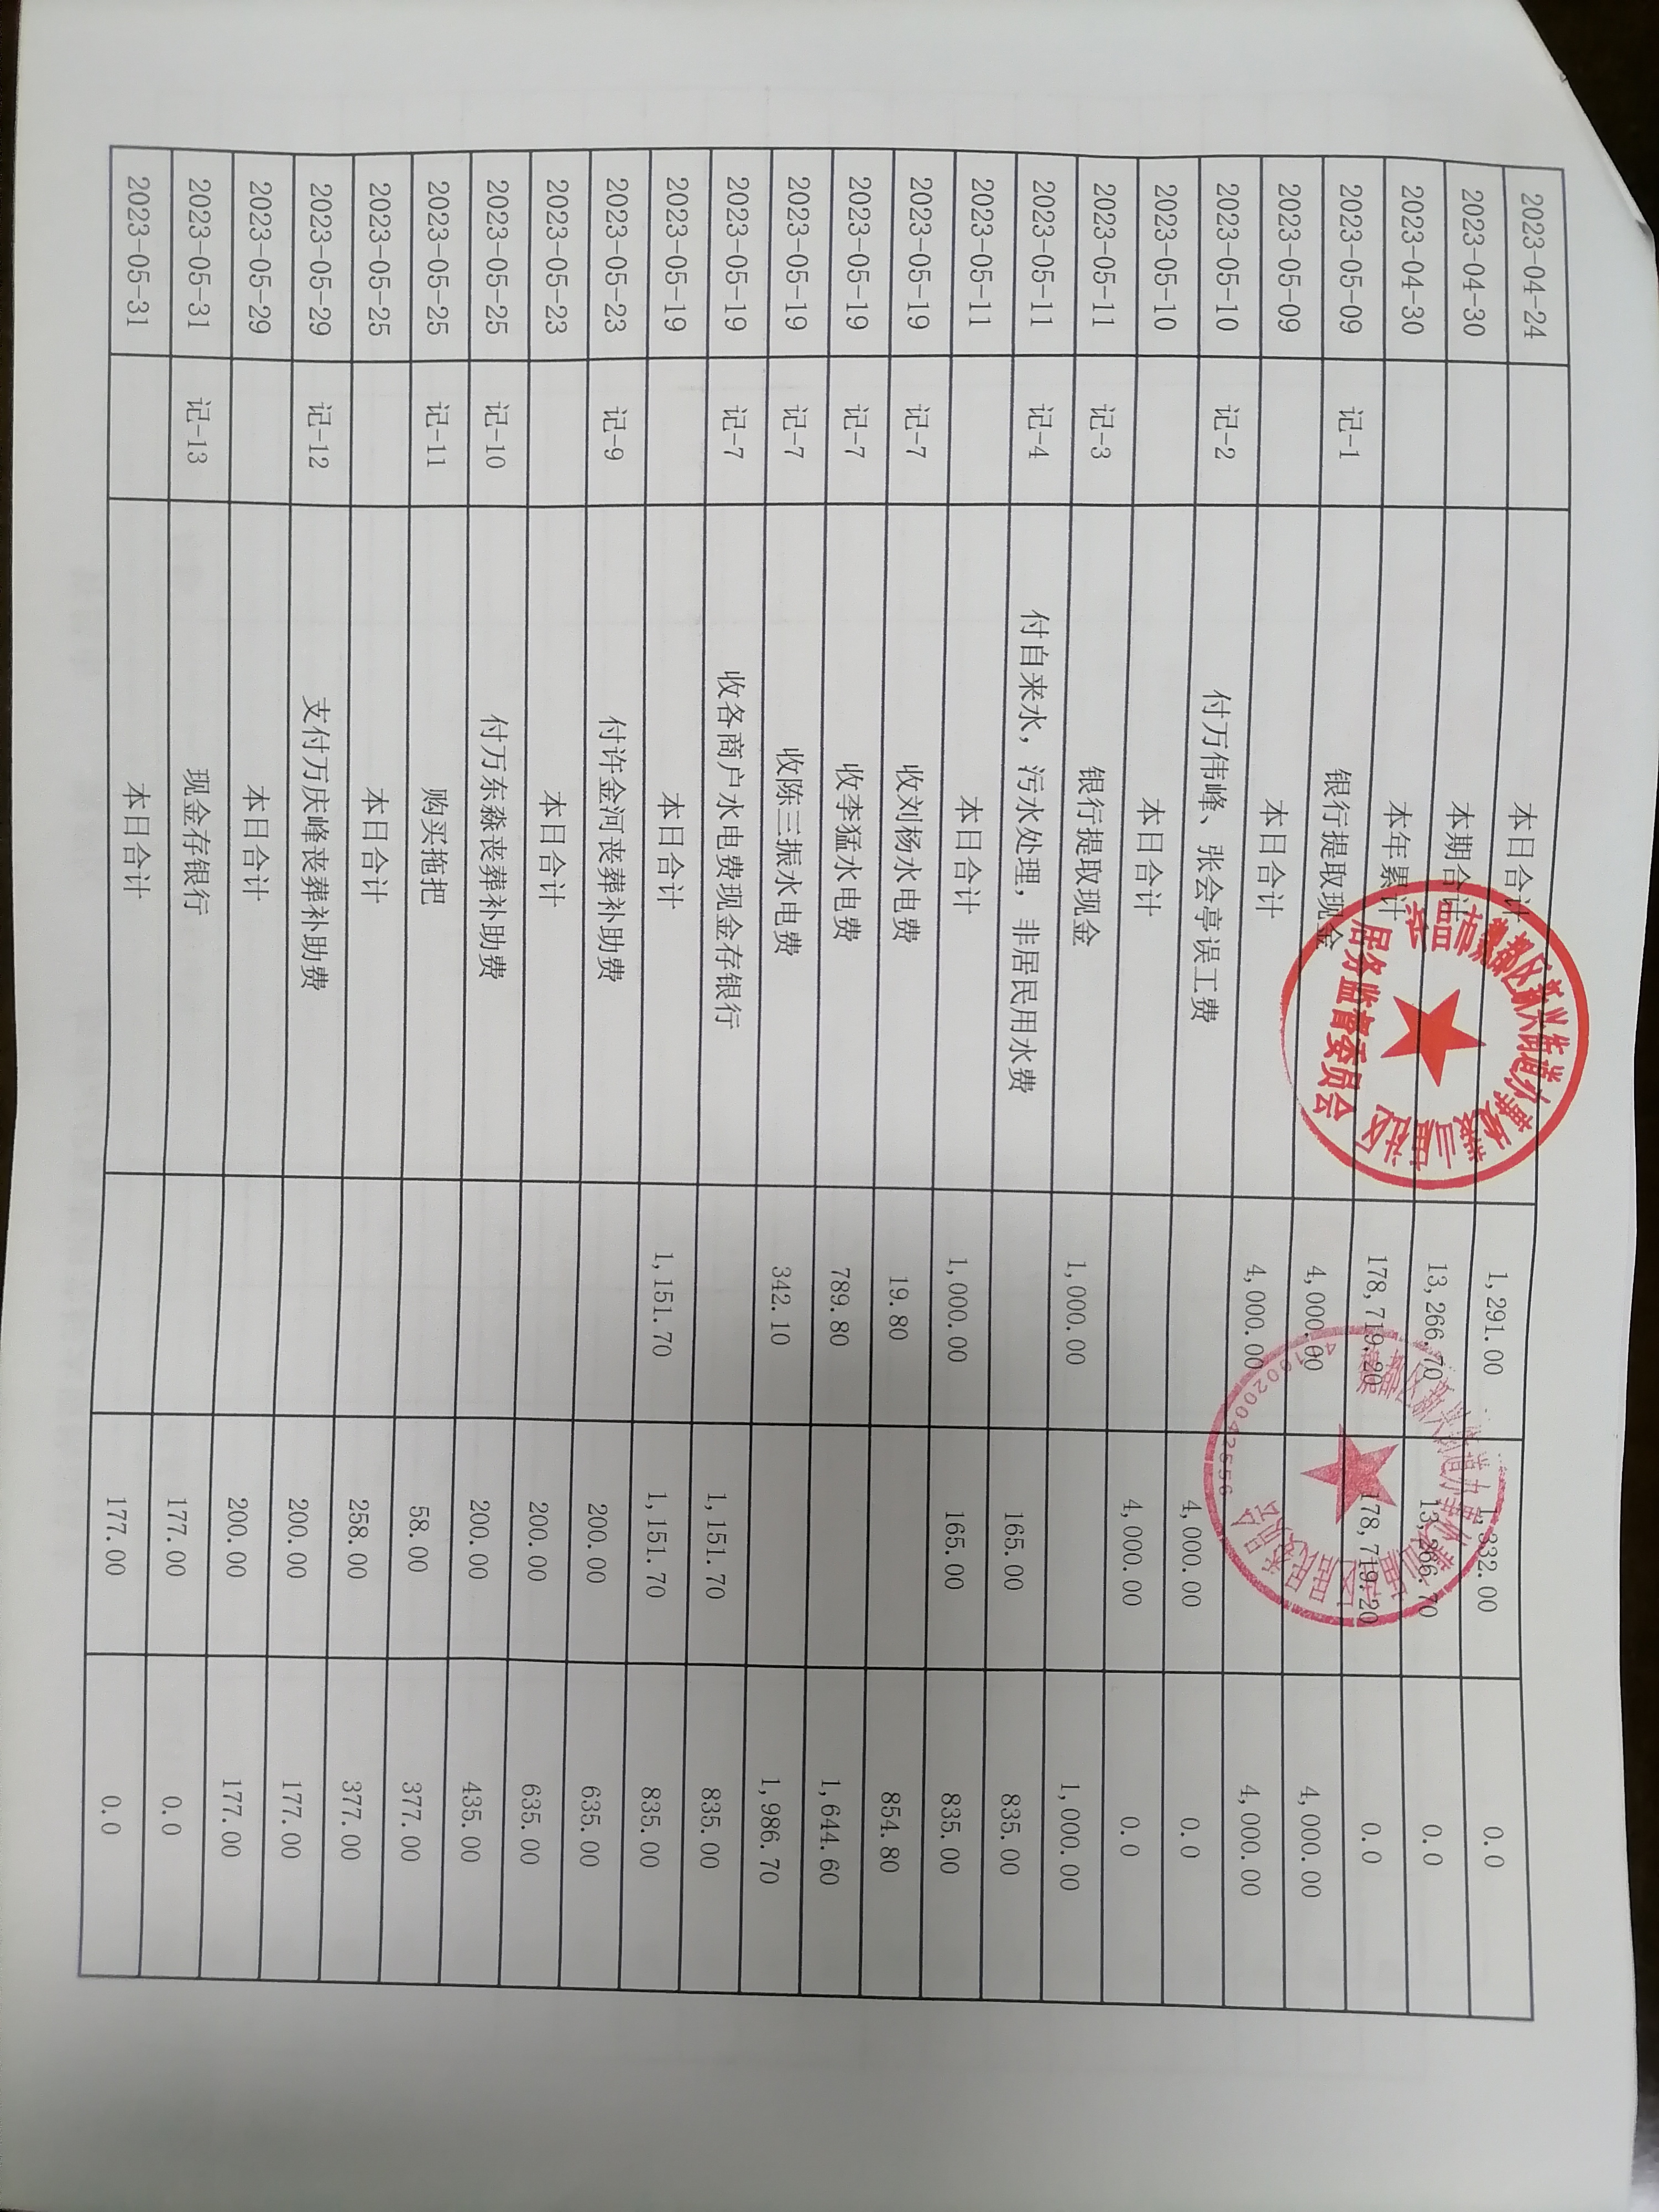 2023-04-24 本日合计 1,291.00 1,332.00 0.0
2023-04-30 本期合计 13,266.70 13,266.70 0.0
2023-04-30 本年累计 178,719.20 178,719.20 0.0
2023-05-09 记-1 银行提取现金 4,000.00 4,000.00
2023-05-09 本日合计 4,000.00 4,000.00
2023-05-10 记-2 付万伟峰、张会亭误工费 4,000.00 0.0
2023-05-10 本日合计 4,000.00 0.0
2023-05-11 记-3 银行提取现金 1,000.00 1,000.00
2023-05-11 记-4 付自来水，污水处理，非居民用水费 165.00 835.00
2023-05-11 本日合计 1,000.00 165.00 835.00
2023-05-19 记-7 收刘杨水电费 19.80 854.80
2023-05-19 记-7 收李猛水电费 789.80 1,644.60
2023-05-19 记-7 收陈三振水电费 342.10 1,986.70
2023-05-19 记-7 收各商户水电费现金存银行 1,151.70 835.00
2023-05-19 本日合计 1,151.70 1,151.70 835.00
2023-05-23 记-9 付许金河丧葬补助费 200.00 635.00
2023-05-23 本日合计 200.00 635.00
2023-05-25 记-10 付万东淼丧葬补助费 200.00 435.00
2023-05-25 记-11 购买拖把 58.00 377.00
2023-05-25 本日合计 258.00 377.00
2023-05-29 记-12 支付万庆峰丧葬补助费 200.00 177.00
2023-05-29 本日合计 200.00 177.00
2023-05-31 记-13 现金存银行 177.00 0.0
2023-05-31 本日合计 177.00 0.0
居务监督委员会